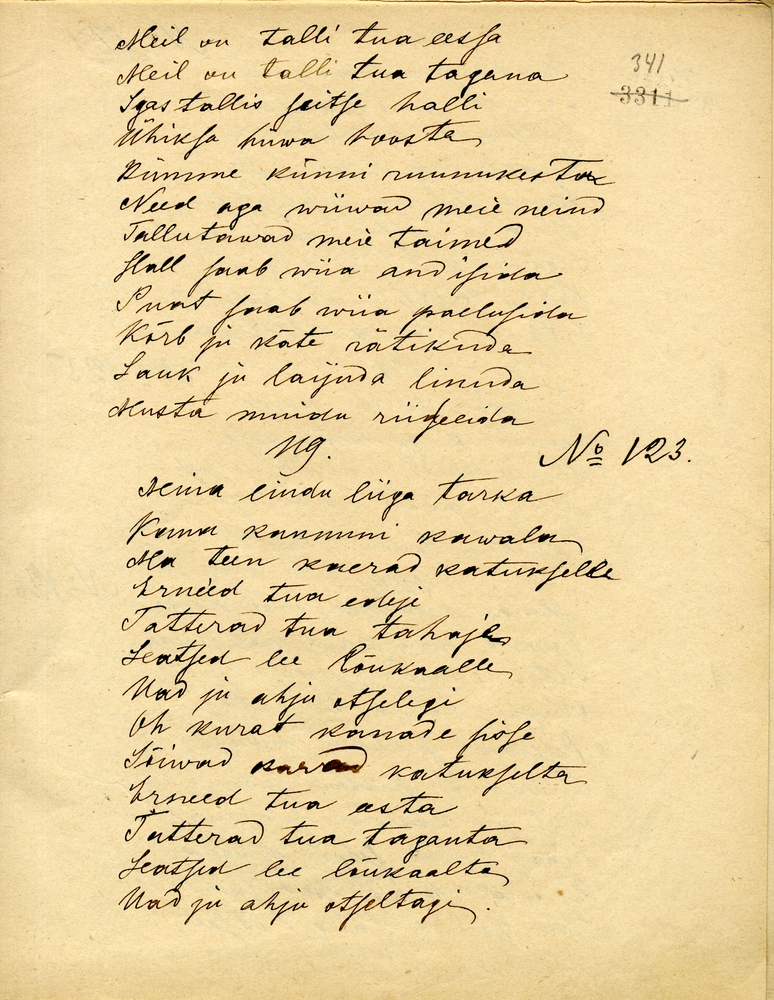 Meil on talli tua eessa
Meil on talli tua tagana
341
3311
Igas tallis seitse halli
Ühiksa hüwa hoosta
Kümme künni ruunukesta
Need aga wiiwad meie neiud
Tallutawad meie taimed
Hall saab wiia andisida
Ruat saab wiia paelusida
Kõrb ju käte rätikuda
Lauk ju laijuda linuda
Musta muidu riideeida
119.
No 123.
Meina eindu liiga tarka
Kana kanumi kawala
Ma teen kaerad katukselle
Erneed tua edeje
Tatterad tua tahaje
Seatsed lee lõukaalle
Uad ju ahju otselegi
Oh kurat kanade sööje
Sõiwad karad katukselta
Erneed tua eesta
Tatterad tua taganta
Seatsed lee lõukaalta
Uad ju ahju otseltagi.